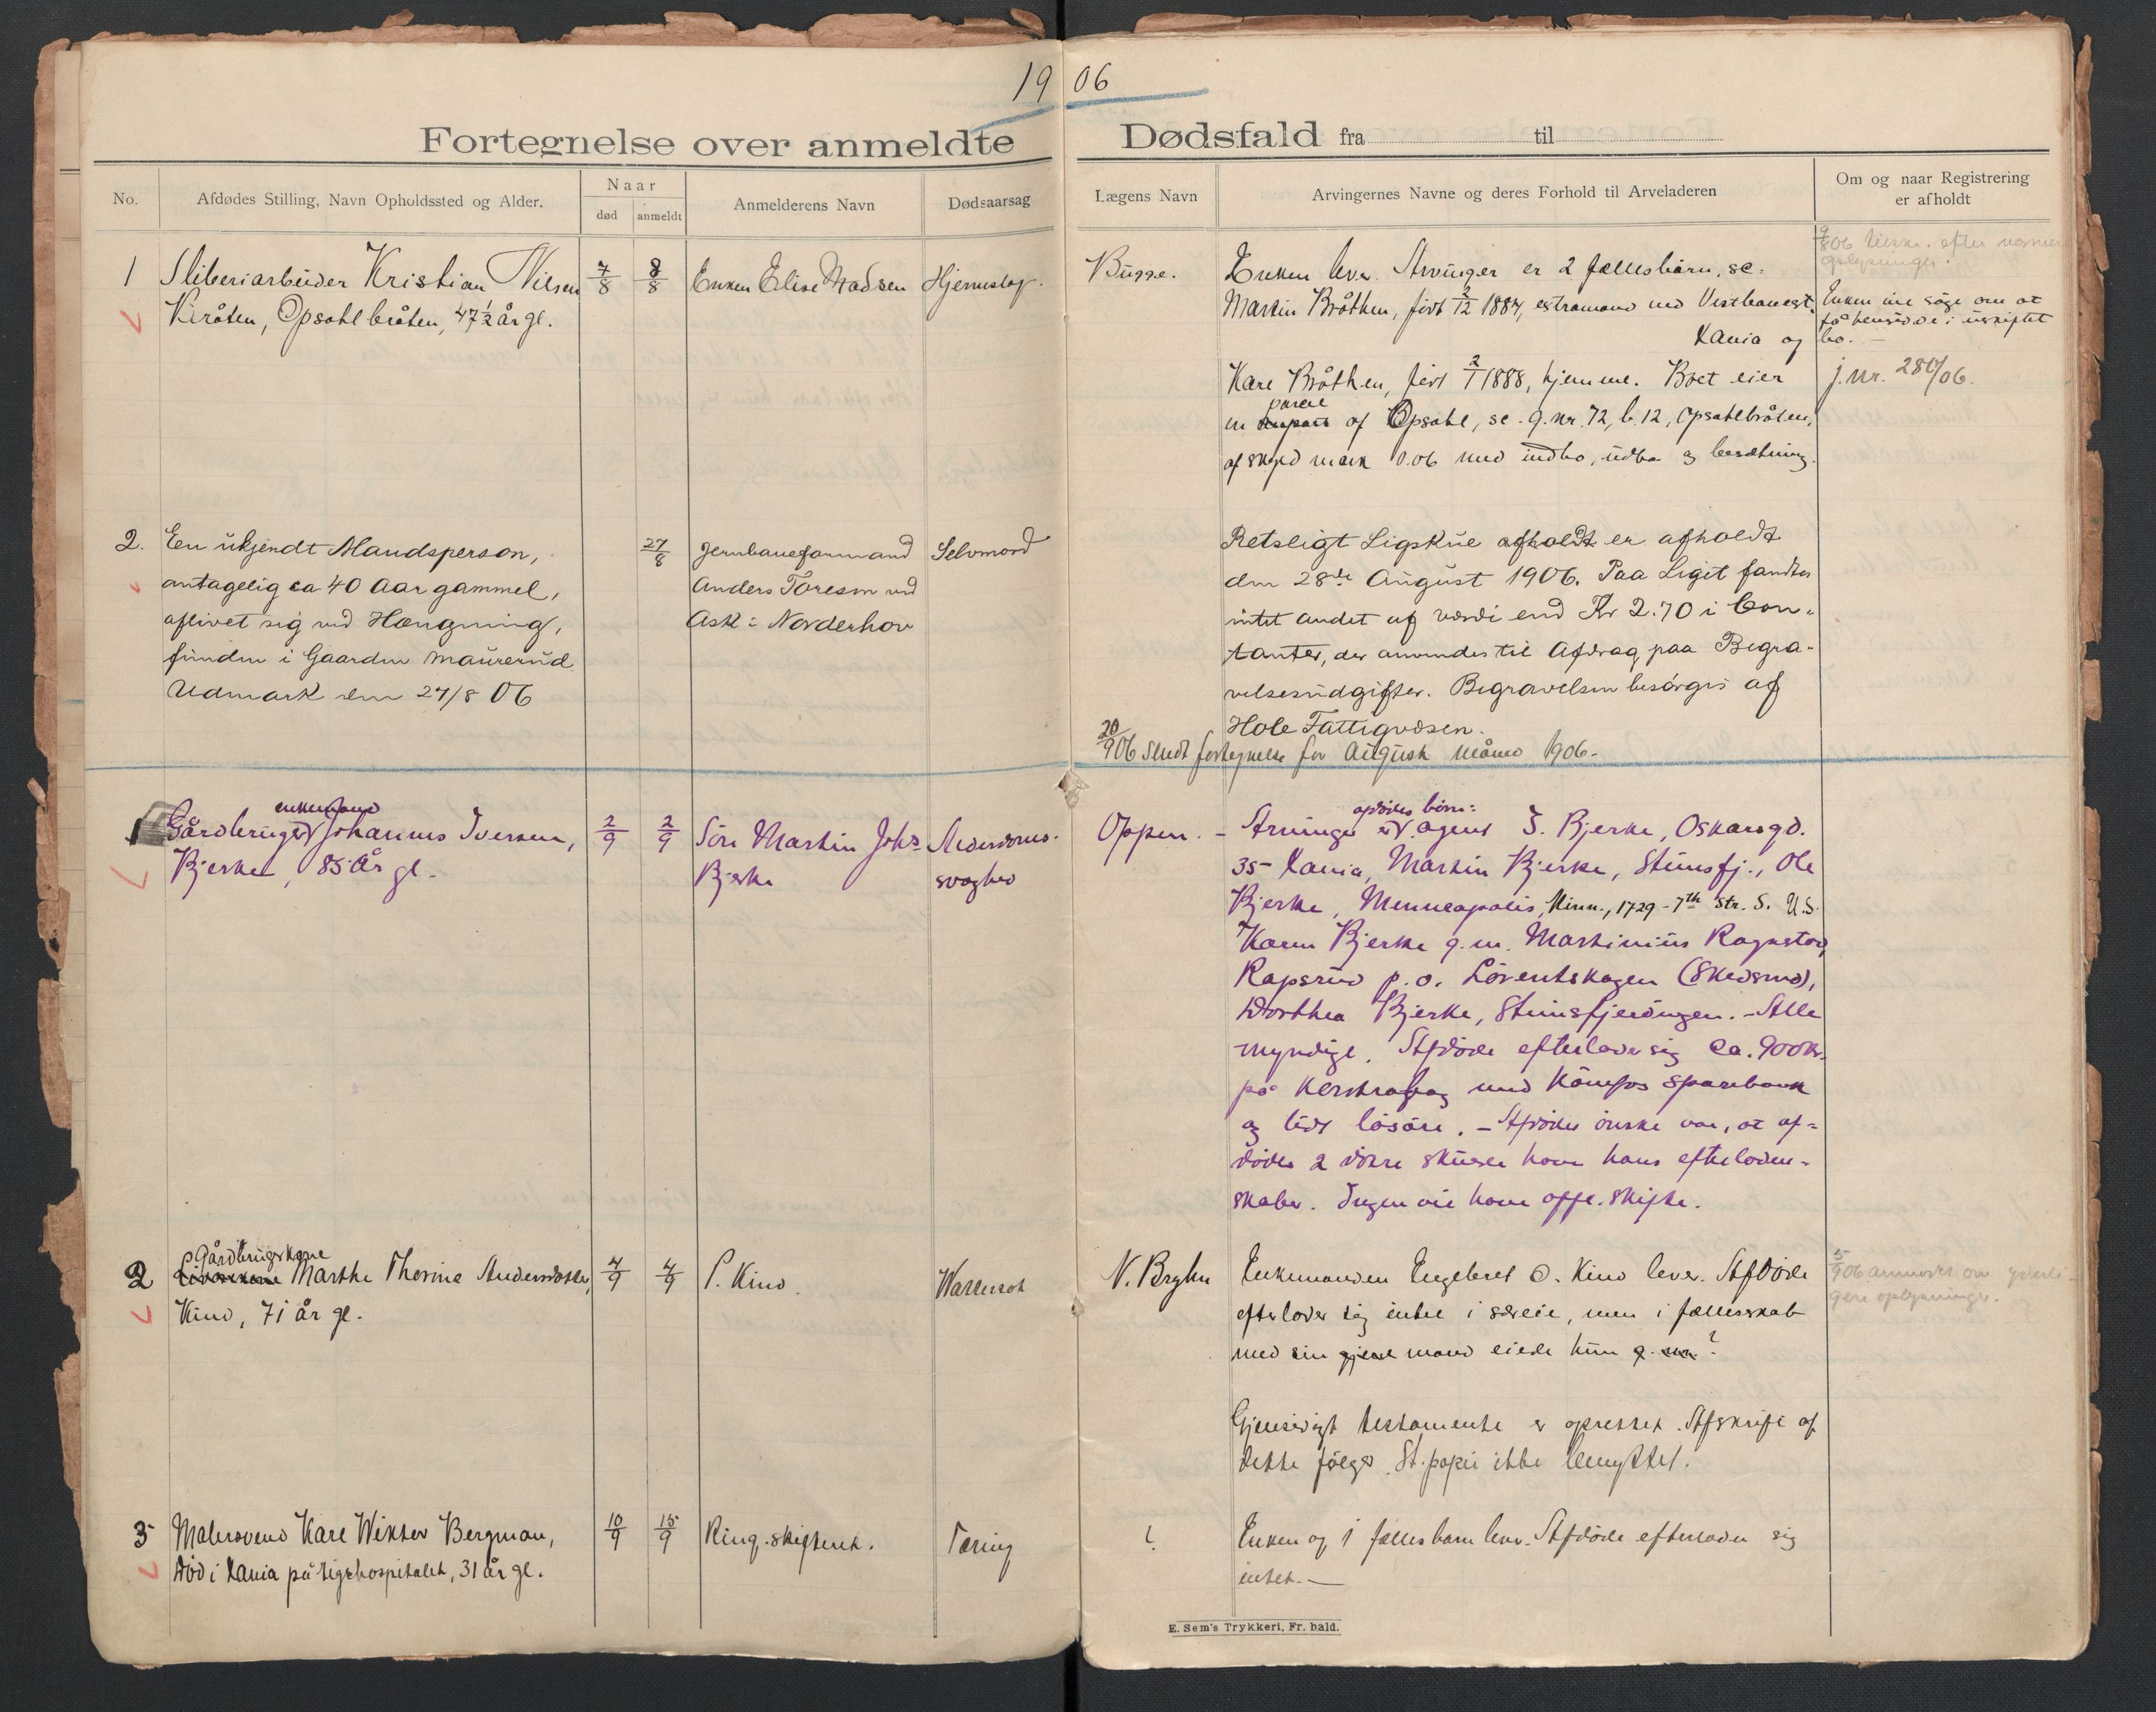 19 06
Fortegnelse over anmeldte Dødsfald fra til
No.
Afdødes Stilling, Navn Opholdssted og Alder.
Naar
død
anmeldt
Anmelderens Navn
Dødsaarsag
Lægens Navn
Arvingernes Navne og deres Forhold til Arveladeren
Om og naar Registrering
er afholdt
1
Sliberiarbeider Kristian Nilsen
Bråten, Opsahlbråten, 47½ år gl.
7/8
8/8
Enken Elise Madsen
Hjerneslag.
Bugge.
Enken lever. Arvinger er 2 fællesbørn, se:
Martin Bråthen, født 2/12 1884, extramand ved Vestbanest.
Kania og
Karl Bråthen, født 2/1 1888, hjemme. Boet eier
parcel
en af Opsahl, se. g.nr. 72, b. 12, Opsahlbråten,
af skyld mark 0.06 med indbo, udbo og besætning.
Enken vil søge om at
få hensidde i uskiftet
bo. —
j.nr. 280/06.
2.
En ukjendt Mandsperson,
antagelig ca 40 Aar gammel,
aflivet sig ved Hængning,
funden i Gaarden Maurerud
Udmark den 27/8 06
27/8
Jernbaneformand
Anders Toresen ved
Ask i Norderhov
Selvmord
Retsligt Ligskue afholdt er afholdt
den 28de August 1906. Paa Liget fandtes
intet andet af værdi end Kr 2.70 i Con-
tanter, der anvendes til Afdrag paa Begra-
velsesudgifter. Begravelsen besørges af
Hole Fattigvæsen.
20/9 06 Sendt fortegnelse for August måned 1906.-
1
enkemand
Gårdbruger Johannes Iversen,
Bjerke, 85 år gl.
2/9
2/9
Søn Martin Johs
Bjerke
Alderdoms-
svaghed
Oppen.
afdødes børn:
- Arvinger er agent J. Bjerke, Oskarsgd.
35 Kania, Martin Bjerke, Stensfj., Ole
Bjerke, Menneapolis, Minn., 1729 - 7th Str. S. U.S.
Karen Bjerke g.m. Martinius Rognstad,
Rapsrud p.o. Lørentskogen (Skedsmo),
Dorthea Bjerke, Stensfjerdingen. - Alle
myndige. Afdøde efterlader sig ca. 900 kr.
på kontrabog med Hønefos Sparebank
og lidt løsøre. - Afdødes ønske var, at af-
dødes 2 døtre skulde have hans efterladen-
skaber. Ingen vil have offe. skifte.
2
Gårdbrugerkone
Marthe Thorine Andersdatter
Kind, 71 år gl.
4/9
4/9
P. Kind.
Wattersot
N. Bryhn
Enkemanden Engebret O. Kind lever. Afdøde
efterlader sig intet i særeie, men i fællesskab
med sin mand eiede hun g. nr. ?
Gjensidigt testamente er oprettet. Afskrift af
dette følger. St. papir ikke benyttet.
5/9 06 anmodet om yderli-
gere oplysninger.
3
Malersvend Karl Wiktor Bergman,
død i Kania på rigshospitalet, 31 år gl.
10/9
15/9
Ring. skifteret.
Tæring
?
Enken og 1 fællesbarn lever. Afdøde efterlader sig
intet. —
E. Sem's Trykkeri, Fr. hald.